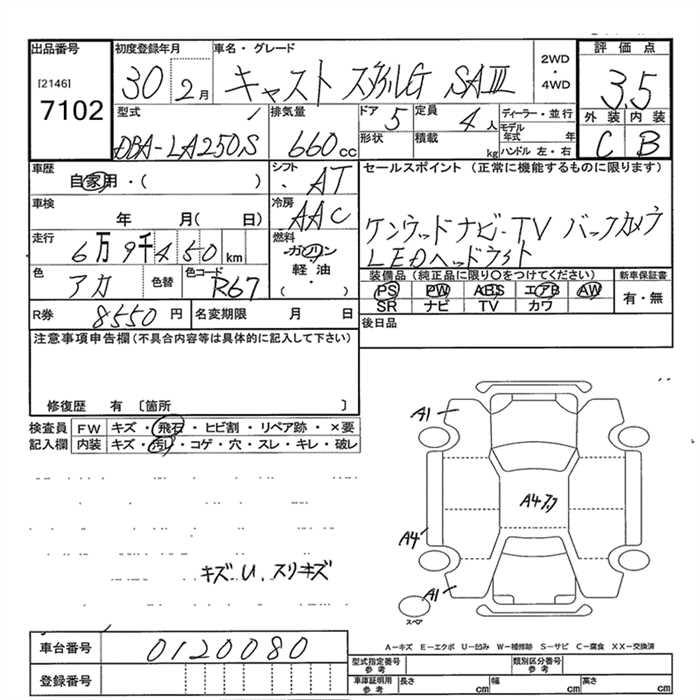 出品番号
[2146]
7102
初度登録年月
30 2月
車名・グレード
キャスト スタイルG SAⅢ
2WD
・
4WD
評価点
3.5
外装 内装
C B
型式
DBA-LA250S
排気量
660 cc
ドア
5
定員
4人
形状
積載
kg
ディーラー・並行
モデル年式 年
ハンドル 左・右
車歴
自家用・( )
シフト
AT
車検
年 月( 日)
冷房
AAC
走行
6万9千450 km
燃料
ガソリン
軽油
( )
色
アカ
色替
色コード
R67
R券
8550 円
名変期限 月 日
セールスポイント(正常に機能するものに限ります)
ケンウッドナビ・TV バックカメラ
LEDヘッドライト
装備品(純正品に限り〇をつけてください)
PS PW ABS エアB AW
SR ナビ TV カワ
新車保証書
有・無
後日品
注意事項申告欄(不具合内容等は具体的に記入して下さい)
修復歴 有 〔箇所 〕
検査員 FW キズ・飛石・ヒビ割・リペア跡・×要
記入欄 内装 キズ・汚れ・コゲ・穴・スレ・キレ・破レ
キズ U. スリキズ
A1
A4
A4
A1
スペア
A－キズ E－エクボ U－凹み W－補修跡 S－サビ C－腐食 XX－交換済
車台番号
0120080
登録番号
型式指定番号
参考
類別区分番号
参考
車庫証明用
参考
長さ cm 幅 cm 高さ cm